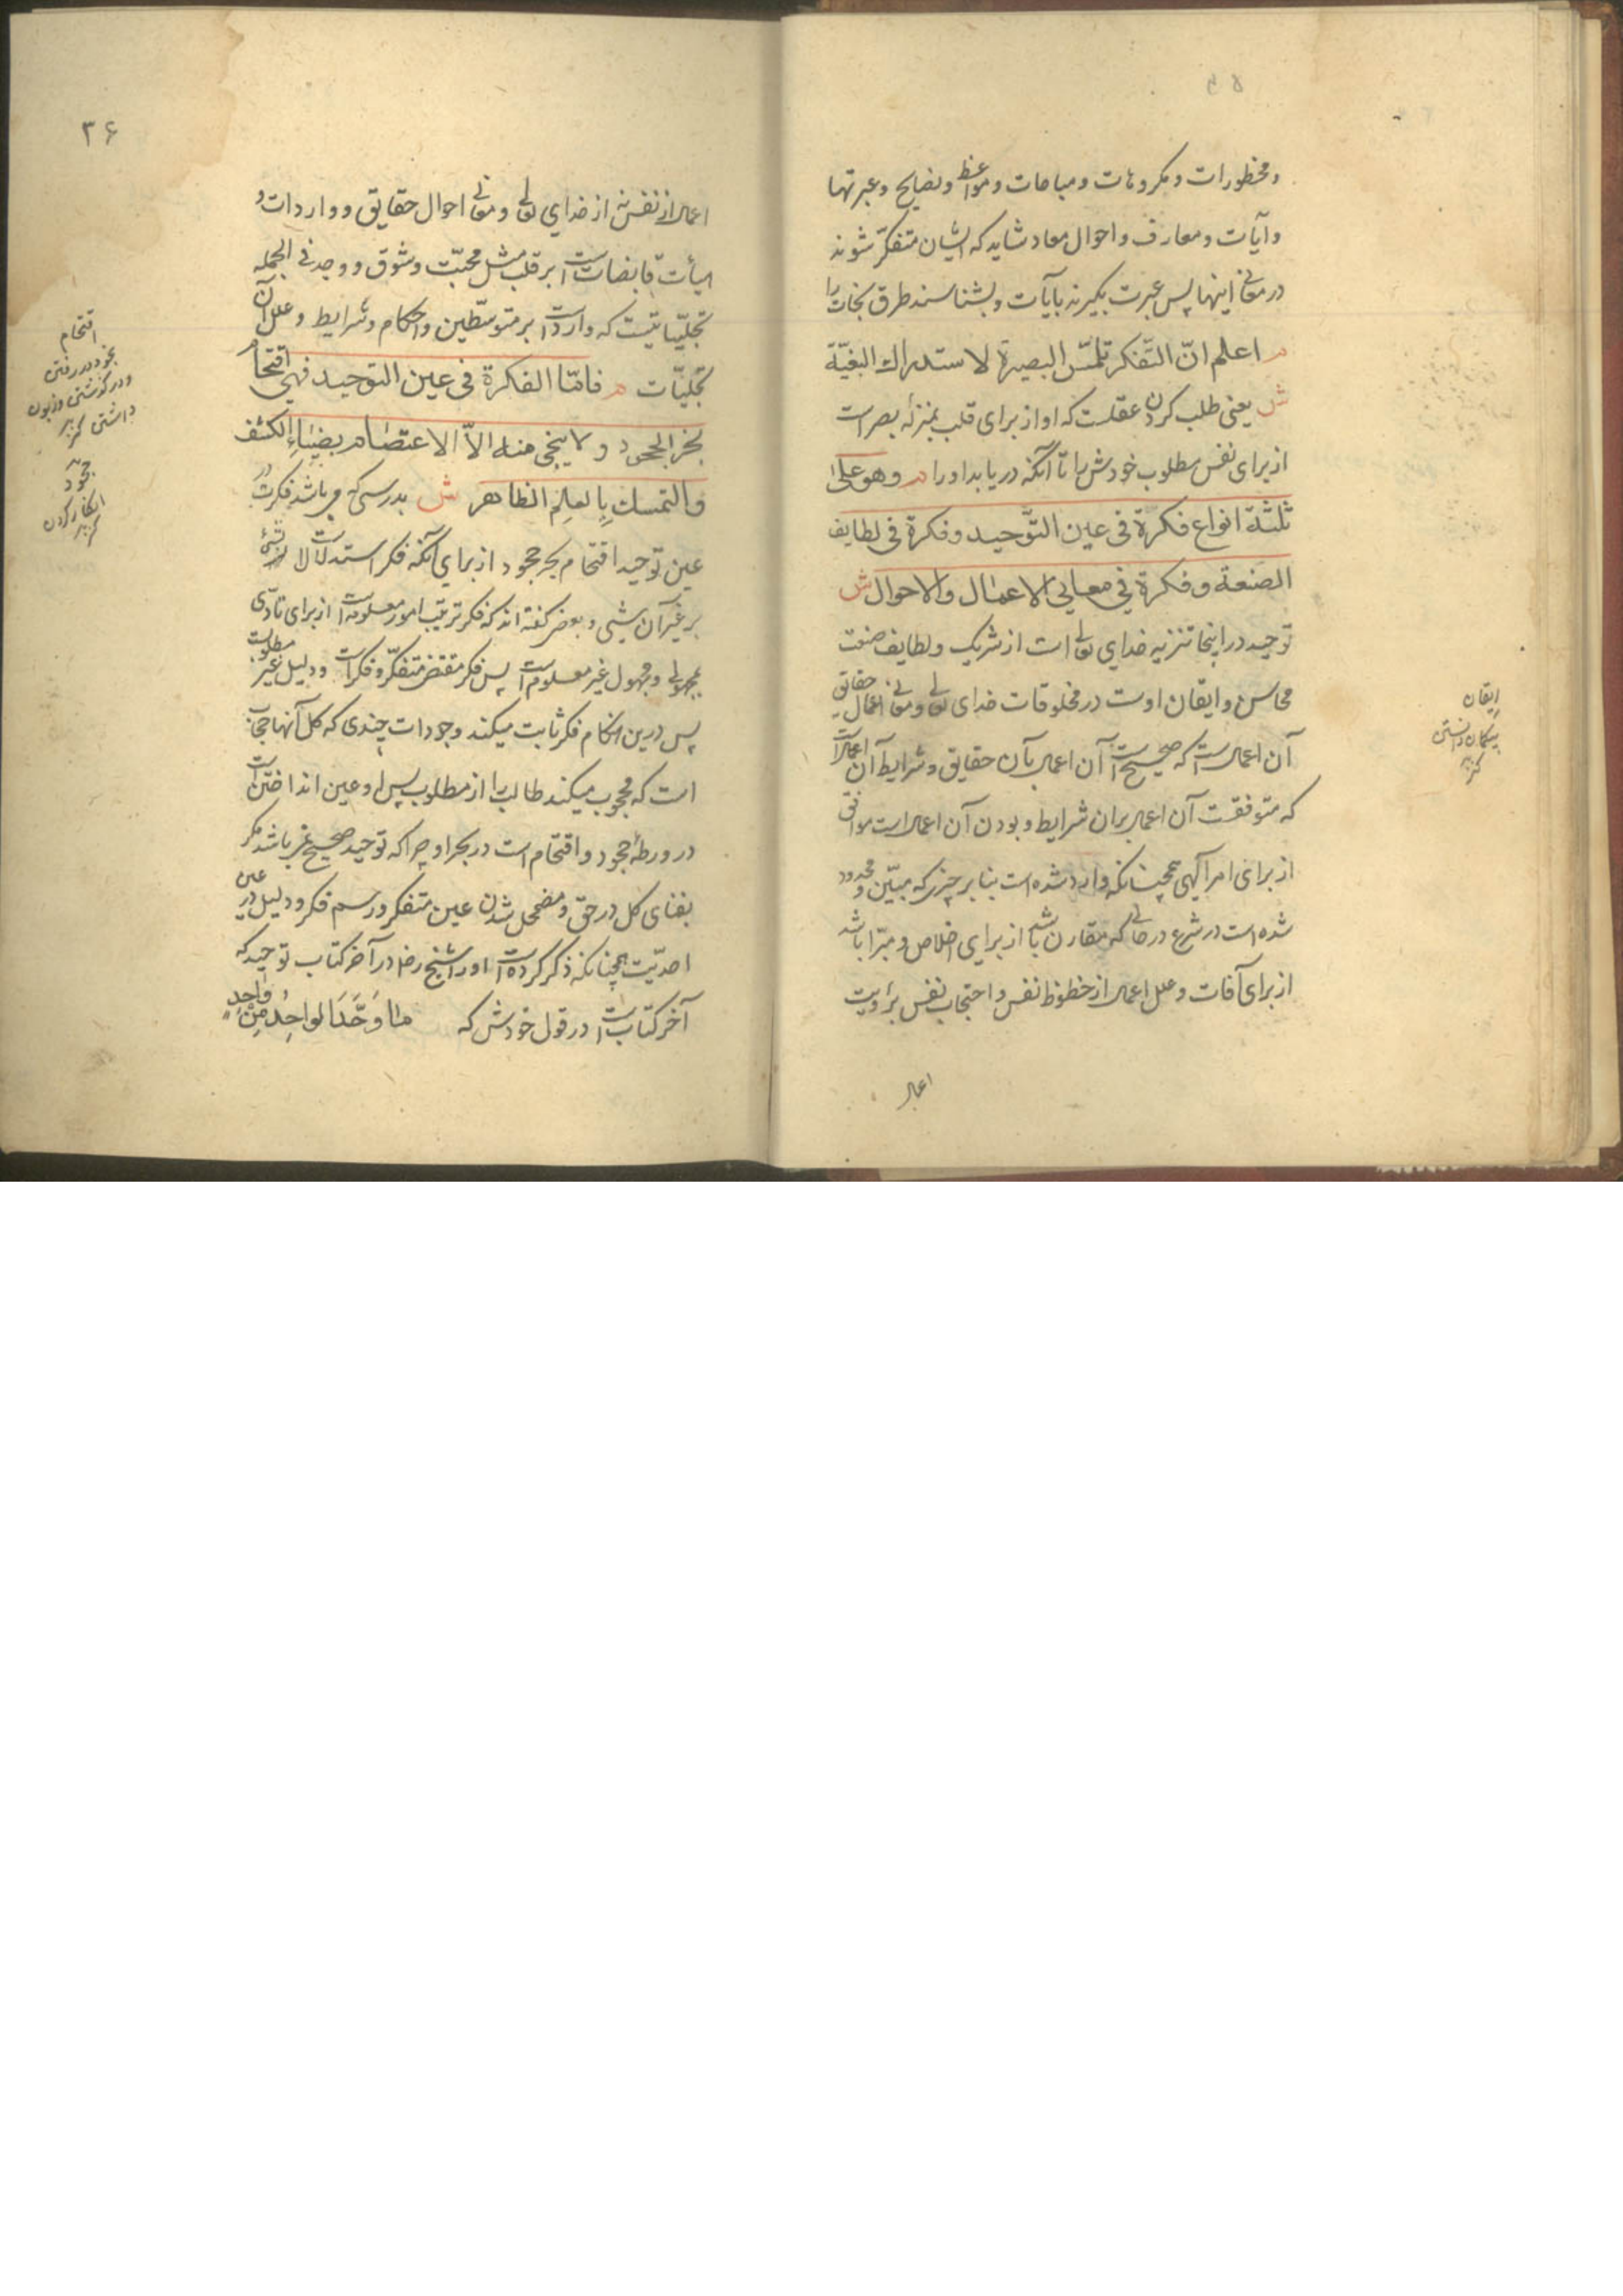 ومخطورات ومکروهات ومباحات ومواعظ ونصایح وعبرتها
وآیات ومعارف واحوال معاد شاید که ایشان متفکّر شوند
در معانی اینها پس عبرت بکیرند بآیات وبشناسند طرق نجات را
م اعلم انّ التّفکر تلمّس البصیرة لاستدراك البغیّة
ش یعنی طلب کردن عقلست که او از برای قلب بمنزلهٔ بصر است
از برای نفس مطلوب خودش را تا آنکه دریابد او را م وهو علی
ثلثة انواع فکرة فی عین التّوحید وفکرة فی لطایف
الصنعة وفکرة فی معانی الاعمال والاحوال ش
توحید در اینجا تنزیه خدای تعالی است از شریک ولطایف صنعت
محاسن وایقان اوست در مخلوقات خدای تعالی ومعانی اعمال حقایق
آن اعمال است که صحیح است آن اعمال بآن حقایق وشرایط آن اعمال است
که متوقفست آن اعمال بران شرایط وبودن آن اعمال است موافق
از برای امر آلهی همچنانکه وارد شده است بنا بر چیزی که مبیّن ومحدود
شده است در شرع در حالی که مقارن باشد از برای اخلاص ومبرّا باشد
از برای آفات وعلل اعمال از حظوظ نفس واحتجاب نفس برؤیت
اعمال
ایقان
بیکمان دانستن
کنز
۳۶
اعمال از نفس نه از خدای تعالی ومعانی احوال حقایق وواردات و
هیأت فایضات است بر قلب مثل محبّت وشوق ووجد فی الجمله
تجلّیاتیست که وارد است بر متوسّطین واحکام وشرایط وعلل آن
تجلّیات م فامّا الفکرة فی عین التوحید فهی اقتحام
بحر الجحود ولا ینجی منه الاّ الاعتصام بضیاء الکشف
والتمسك بالعلم الظاهر ش بدرستی که می باشد فکرت در
عین توحید اقتحام بحر جحود از برای آنکه فکر استدلالات
بر غیر آن شیٔ وبعضی کفته اند که فکر ترتیب امور معلومه است از برای تأدّی
بمجهولی ومجهول غیر معلوم است پس فکر مقتضی متفکّر وفکر است ودلیل غیر مطلوبست
پس درین هنکام فکر ثابت میکند وجودات چندی که کل آنها حجاب
است که محجوب میکند طالب را از مطلوب پس او عین انداختن است
در ورطهٔ جحود واقتحام است در بحر او چرا که توحید صحیح نمی باشد مکر
بفنای کل در حق ومضمحل شدن عین متفکر ورسم فکر ودلیل در عین
احدیّت همچنانکه ذکر کرده است او را شیخ رض در آخر کتاب توحید که
آخر کتابست در قول خودش که مَا وَحَّدَ الواحِدَ مِنْ وَاحِدٍ
اقتحام
بخود در رفتن
ودر گذشتن وزبون
داشتن کنز
جحود
انکار کردن
کنز